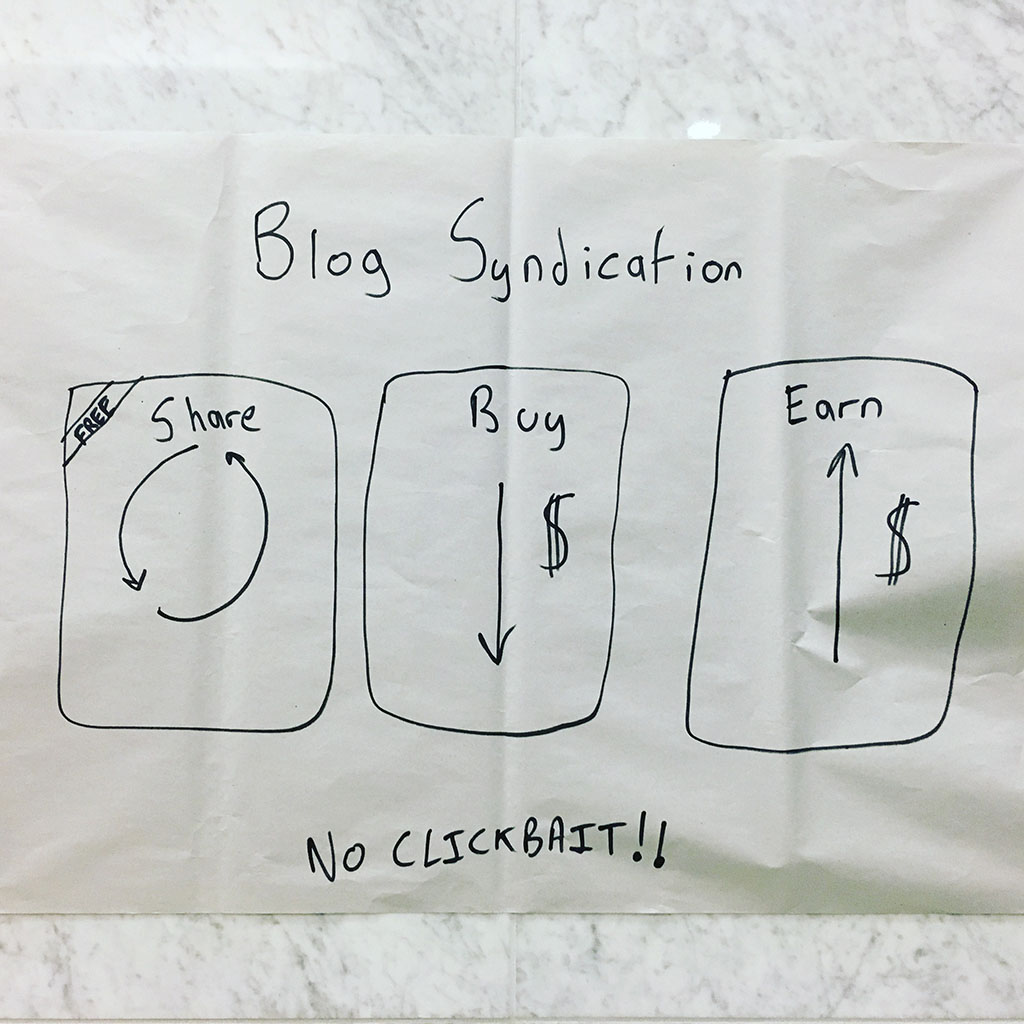 Blog Syndication
FREE
Share
Buy
$
Earn
$
NO CLICKBAIT!!